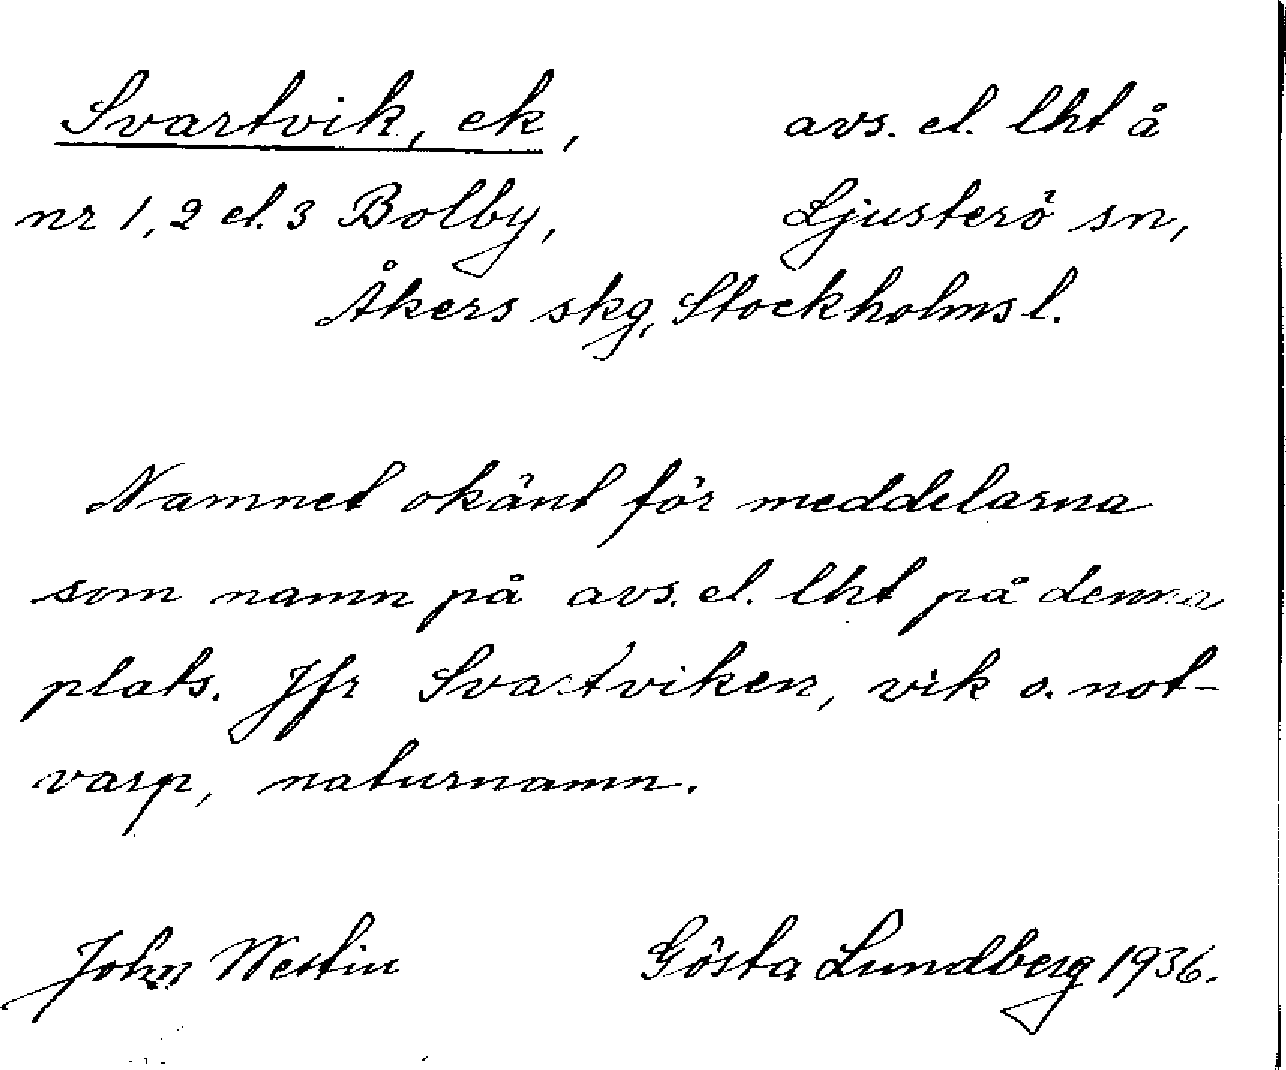 Svartvik, ek, avs. el. lht å
nr 1, 2 el. 3 Bolby, Ljusterö sn,
Åkers skg, Stockholms l.
Namnet okänt för meddelarna
som namn på avs. el. lht på denna
plats. Jfr Svartviken, vik o. not-
varp, naturnamn.
John Westin Gösta Lundberg 1936.